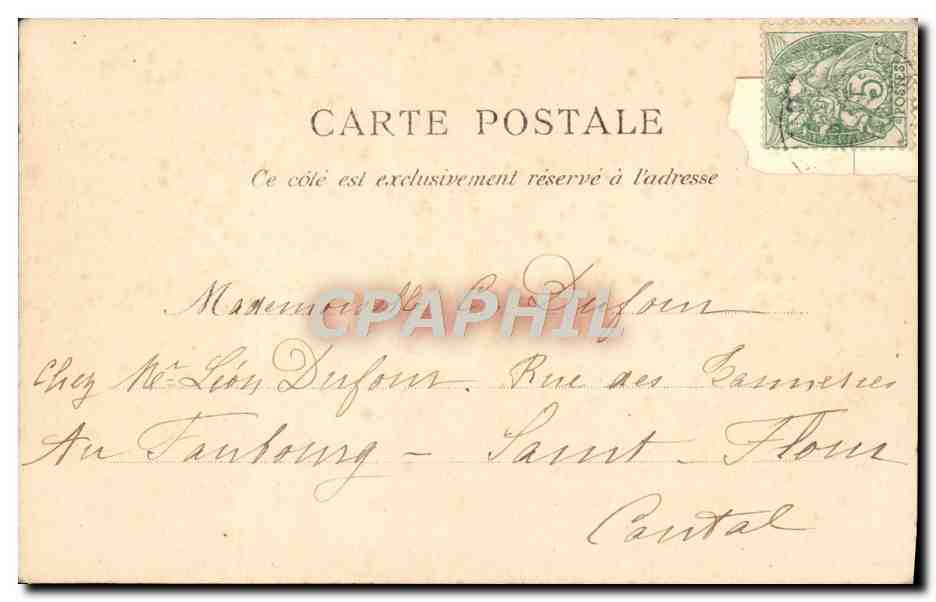 5c
POSTES
CARTE POSTALE
Ce côté est exclusivement réservé à l'adresse
Mademoiselle Dufour
CPAPHIL
Chez Mr. Léon Dufour. Rue des Tanneries
Au Faubourg - Saint-Flour
Cantal